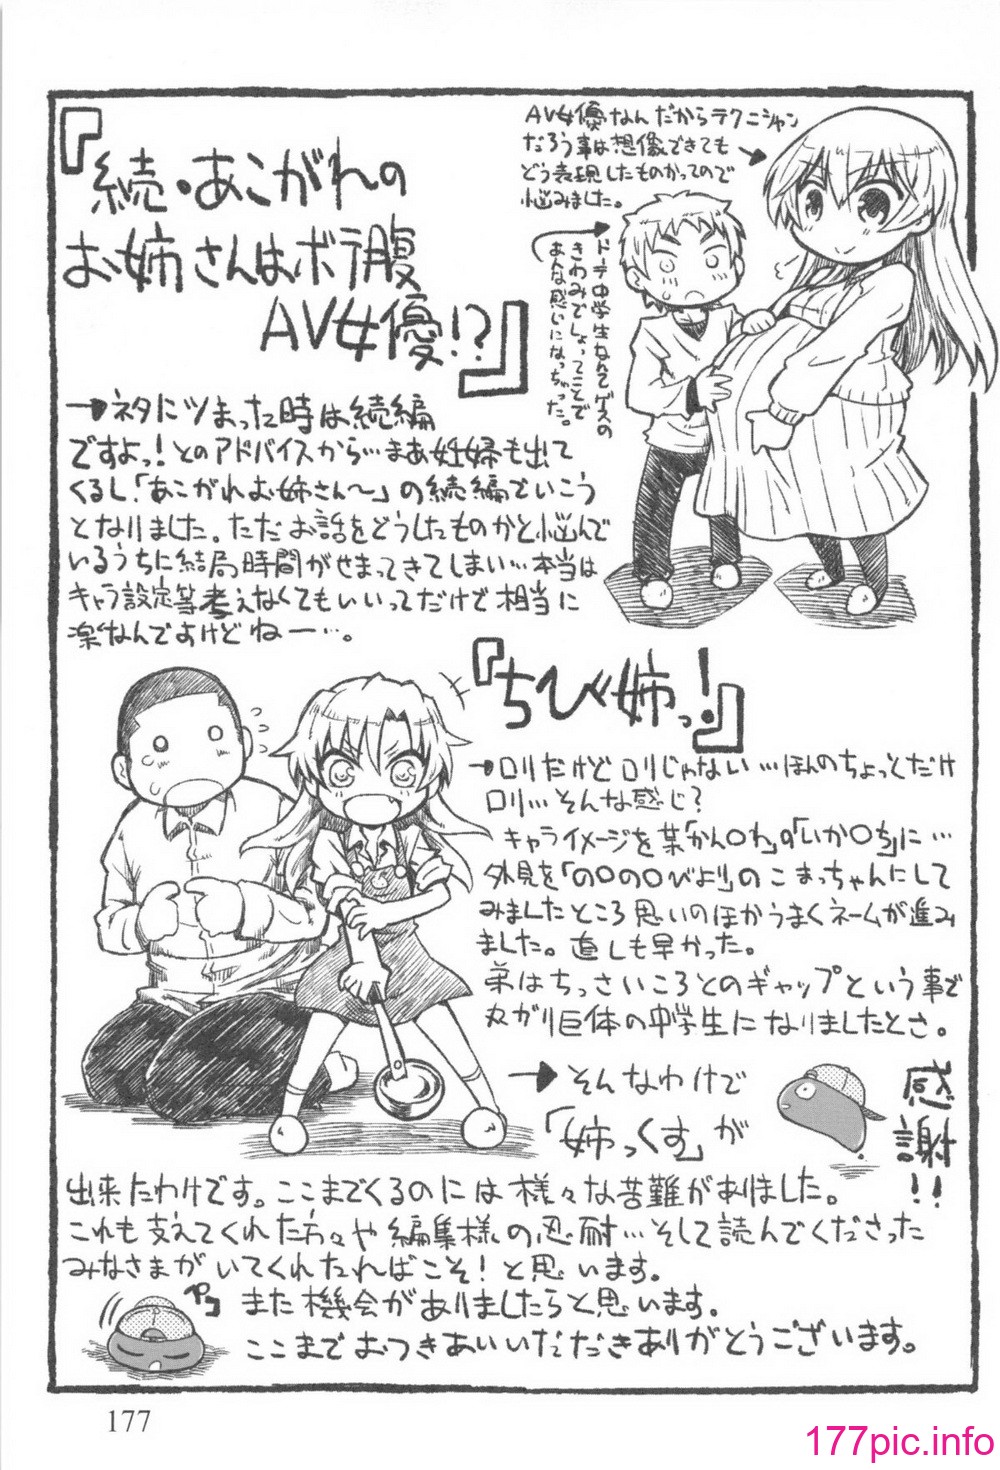 『続・あこがれの
お姉さんはボテ腹
AV女優!?』
AV女優なんだからテクニシャン
だろう事は想像できても
どう表現したものかってので
悩みました。
ドーテー中学生なんてゲスの
きわみでしょってことで
あんな感じになっちゃった。
→ネタにツまった時は続編
ですよっ!とのアドバイスから…まあ妊婦も出て
くるし「あこがれお姉さん～」の続編でいこう
となりました。ただお話をどうしたものかと悩んで
いるうちに結局時間がせまってきてしまい…本当は
キャラ設定等考えなくてもいいってだけで相当に
楽なんですけどねー…。
『ちび姉っ!』
→ロリだけどロリじゃない…ほんのちょっとだけ
ロリ…そんな感じ?
キャライメージを某「かん○れ」の「いか○ち」に…
外見を「の○の○びより」のこまっちゃんにして
みましたところ思いのほかうまくネームが進み
ました。直しも早かった。
弟はちっさいころとのギャップという事で
丸がり巨体の中学生になりましたとさ。
→そんなわけで
「姉っくす」が
出来たわけです。ここまでくるのには様々な苦難がありました。
これも支えてくれた方々や編集様の忍耐…そして読んでくださった
みなさまがいてくれたればこそ!と思います。
また機会がありましたらと思います。
ここまでおつきあいいただきありがとうございます。
感謝!!
ペコ
177
177pic.info